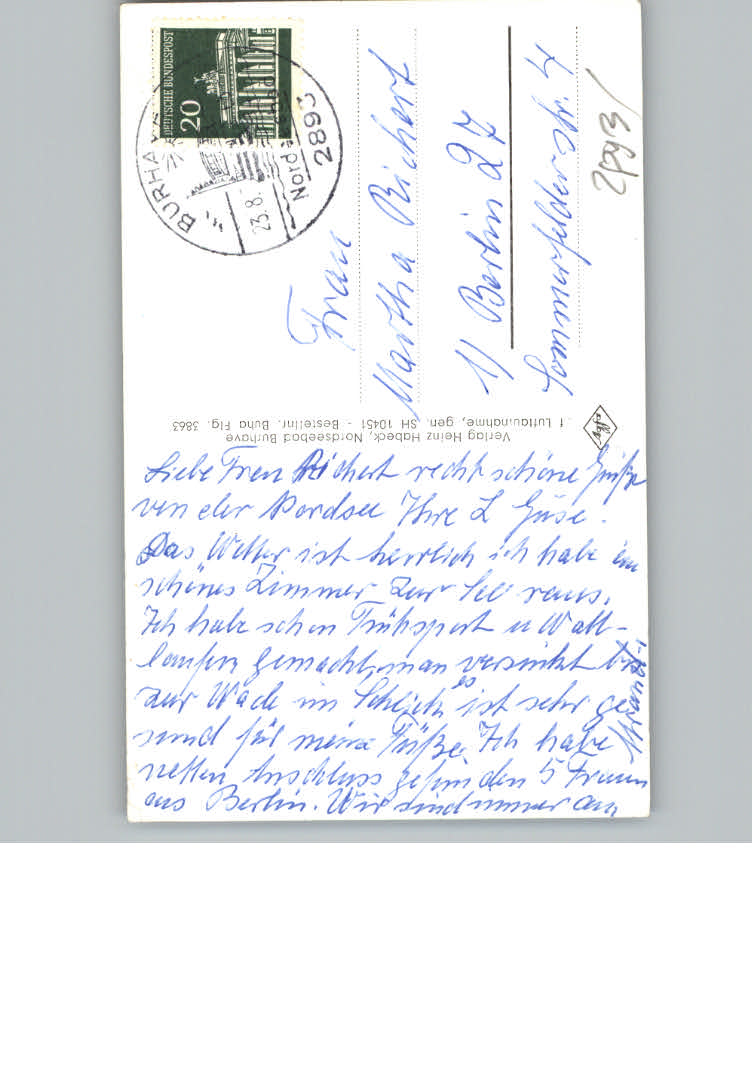 DEUTSCHE BUNDESPOST
20
BURHAVE
23.8.
2893
Frau
Martha Richert
1) Berlin 27
Sommerfelderstr. 4
2893/
Verlag Heinz Habeck, Nordseebad Burhave
f Luftaufnahme, gen. SH 10451 - Bestellnr. Buha Flg. 3863
Agfa
Liebe Frau Richert recht schöne Grüße
von der Nordsee Ihre L Güse.
Das Wetter ist herrlich ich habe ein
schönes Zimmer zur See raus.
Ich habe schon Frühsport u Watt-
laufen gemacht, man versinkt bis
zur Wade im Schlick es ist sehr ge
sund für meine Füße. Ich habe
netten Anschluss gefunden 5 Frauen
aus Berlin. Wir sind immer am
Strand